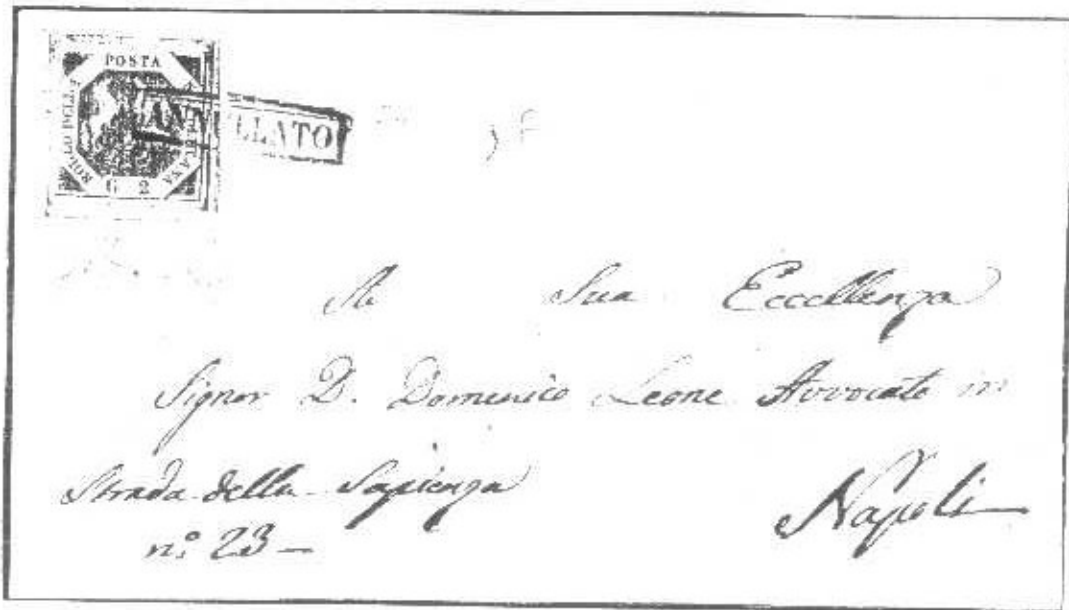 POSTA
NAPOLETANA
BOLLO DELLA
G 2
ANNULLATO
A Sua Eccellenza
Signor D. Domenico Leone Avvocato in
Strada della Sapienza
n.º 23 –
Napoli